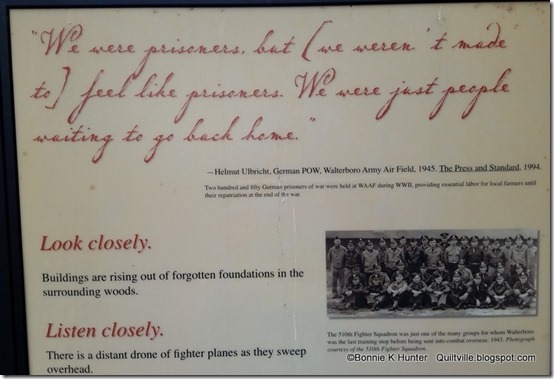 "We were prisoners, but [we weren't made
to] feel like prisoners. We were just people
waiting to go back home."
—Helmut Ulbricht, German POW, Walterboro Army Air Field, 1945. The Press and Standard, 1994.
Two hundred and fifty German prisoners of war were held at WAAF during WWII, providing essential labor for local farmers until
their repatriation at the end of the war.
Look closely.
Buildings are rising out of forgotten foundations in the
surrounding woods.
Listen closely.
There is a distant drone of fighter planes as they sweep
overhead.
The 510th Fighter Squadron was just one of the many groups for whom Walterboro
was the last training stop before being sent into combat overseas. 1943. Photograph
courtesy of the 510th Fighter Squadron.
©Bonnie K Hunter Quiltville.blogspot.com